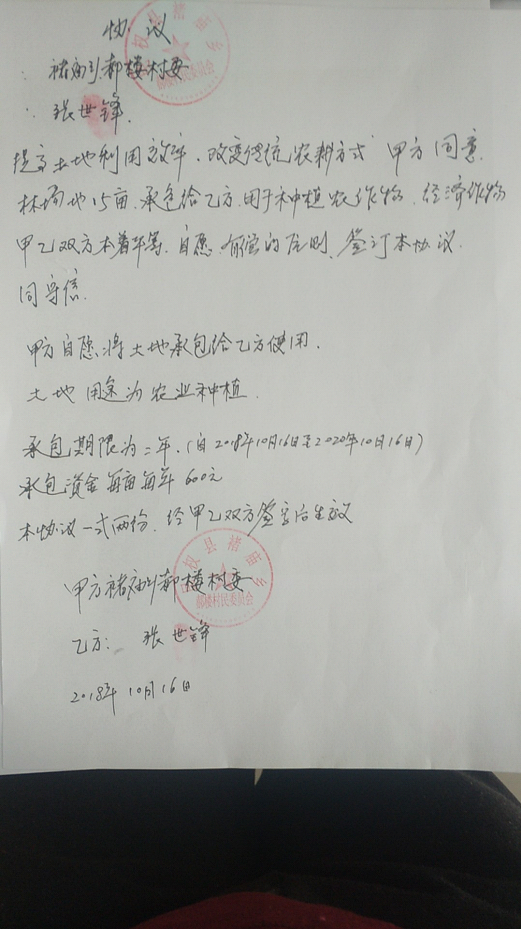 协 议
褚庙乡郝楼村委
张世锋.
提高土地利用效率、改变传统农耕方式 甲方同意
林场地15亩、承包给乙方.用于种植农作物、经济作物
甲乙双方本着平等、自愿、有偿的原则、签订本协议.
同守信.
甲方自愿将土地承包给乙方使用.
土地用途为农业种植.
承包期限为二年.(自2018年10月16日至2020年10月16日)
承包资金每亩每年600元
本协议一式两份.经甲乙双方签字后生效
权县褚庙乡
郝楼村民委员会
甲方褚庙乡郝楼村委
乙方: 张世锋
2018年10月16日